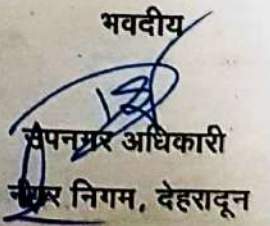 भवदीय
उपनगर अधिकारी
नगर निगम, देहरादून